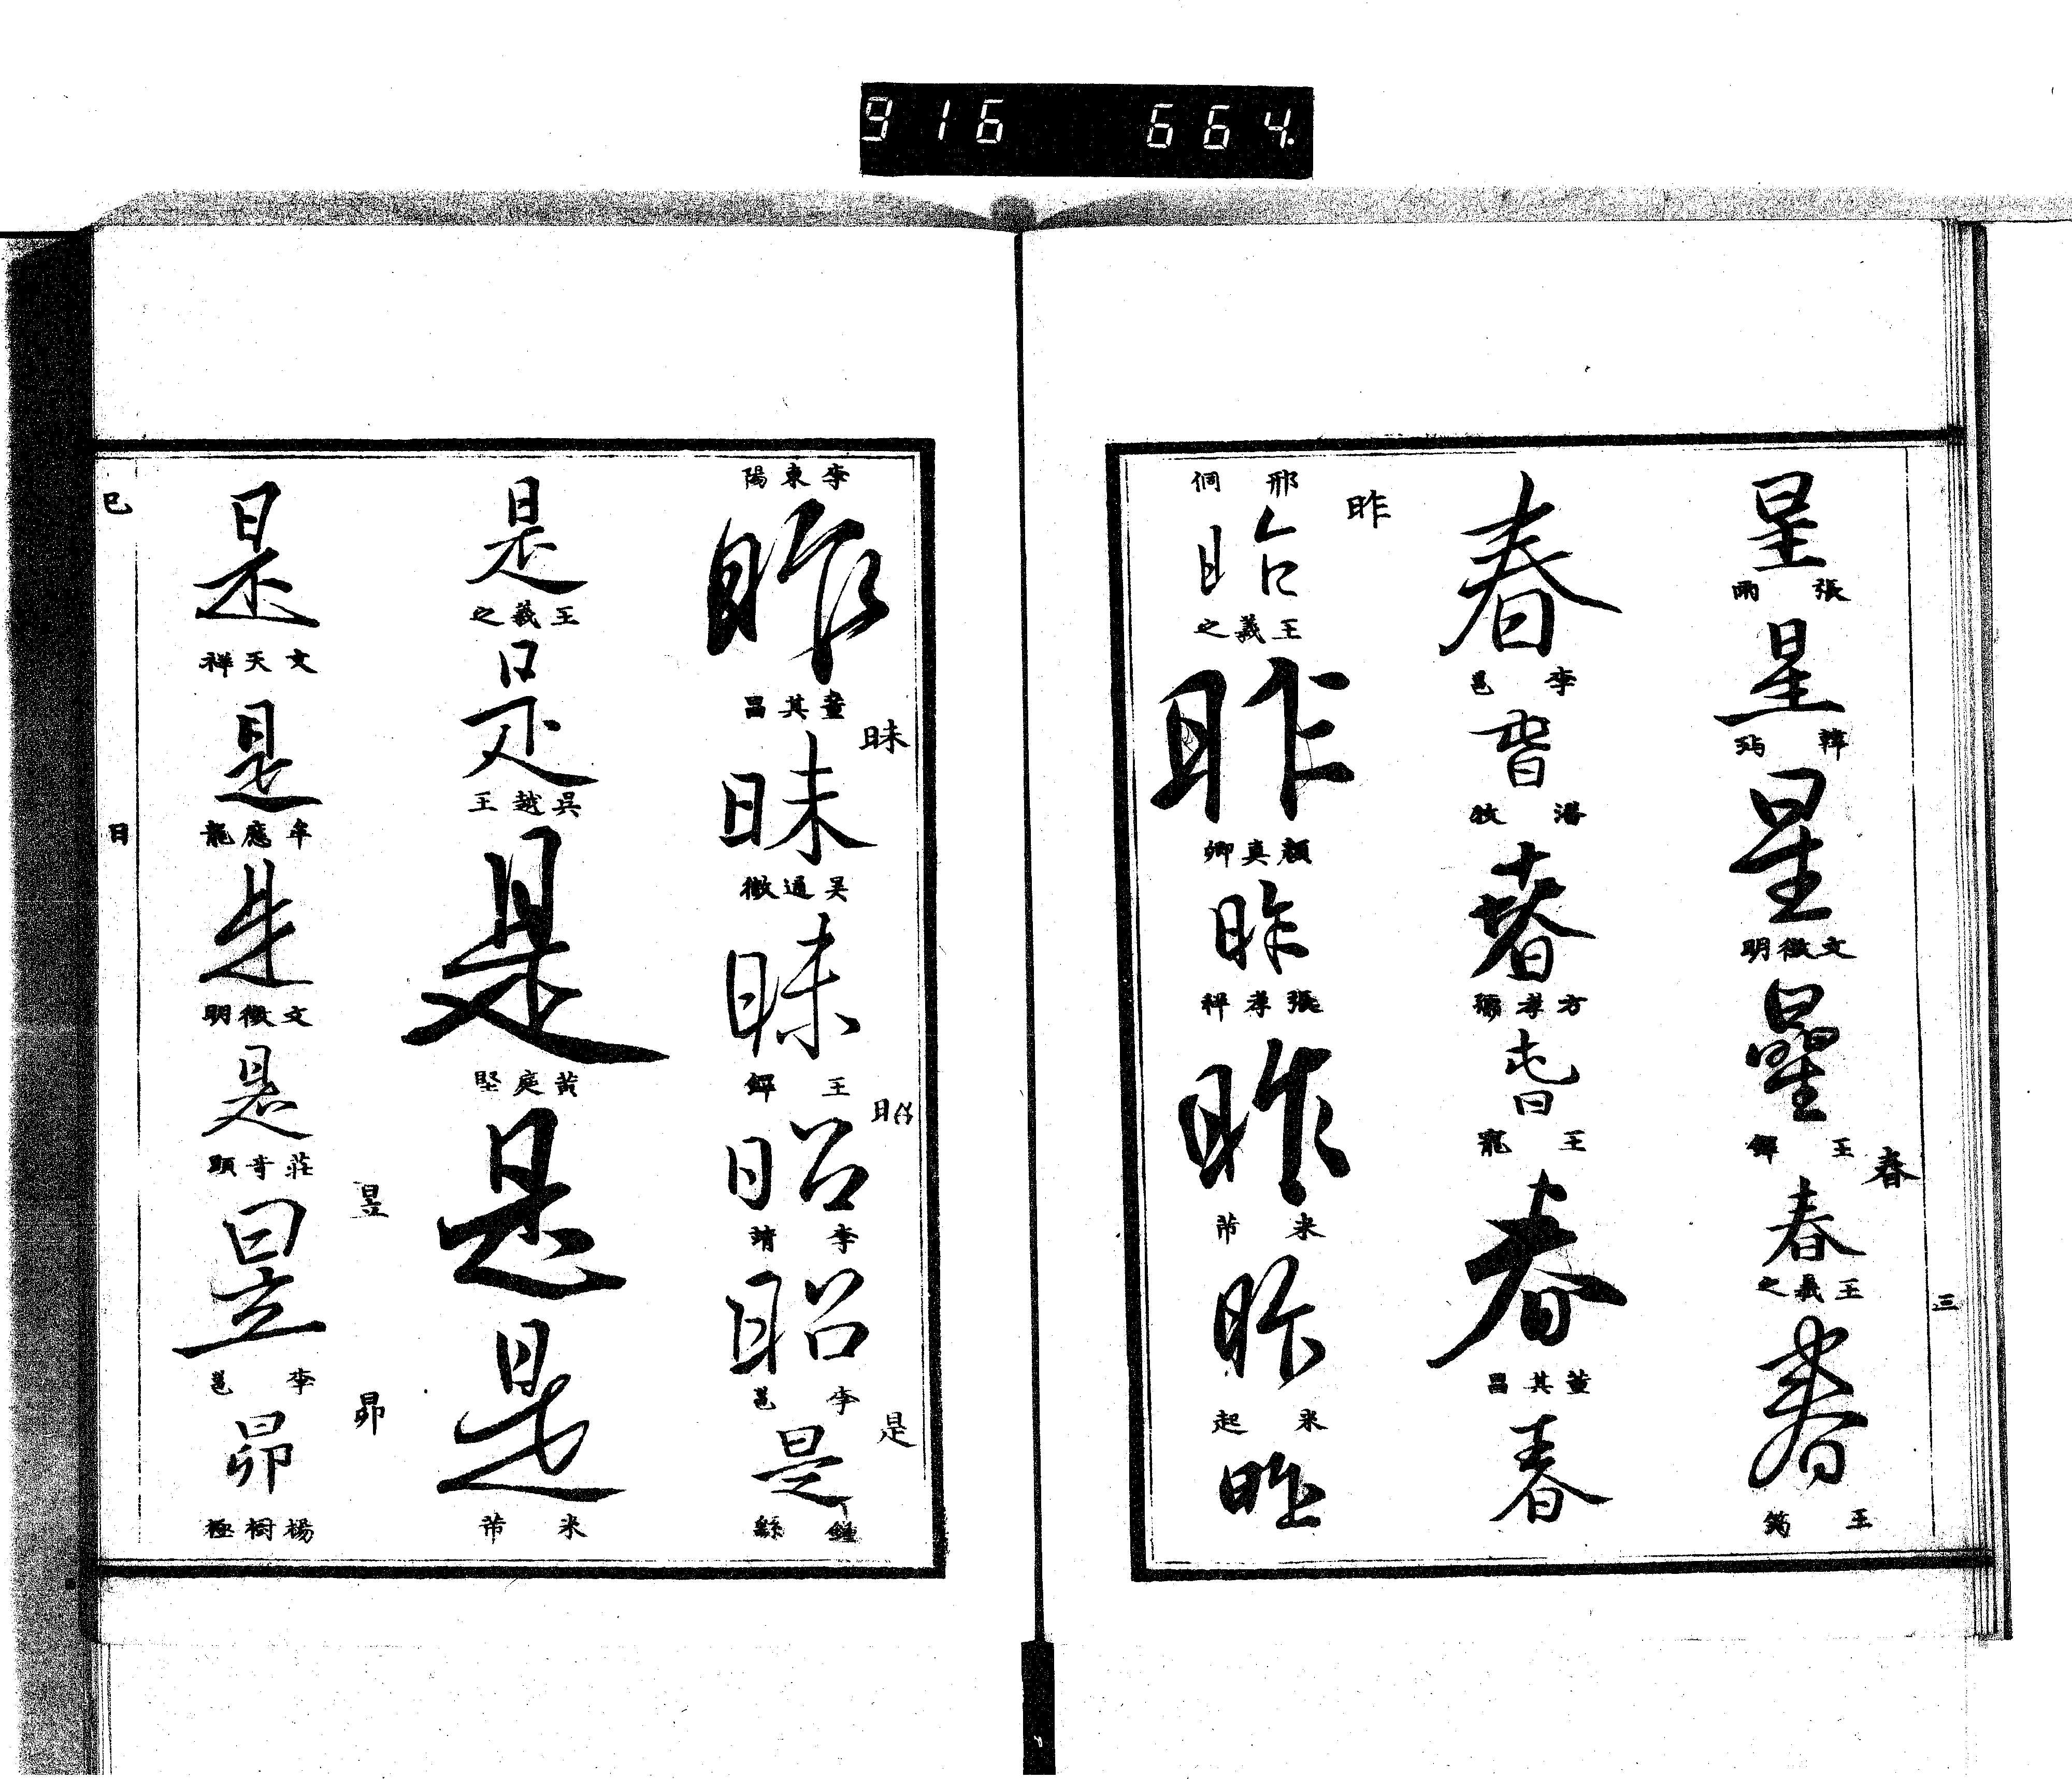 916 664.
星
張雨
星
韓
星
文徵明
星
王鐸
春
春
王羲之
春
王筠
三
春
李邕
春
潘牧
春
方孝孺
春
王寵
春
董其昌
春
邢侗
昨
昭
王羲之
昨
顏真卿
昨
張孝祥
昨
米芾
昨
米起
昨
李東陽
昨
董其昌
昧
昧
吳通微
昧
王鐸
昭
昭
李靖
昭
李邕
是
是
鍾繇
是
王羲之
是
吳越王
是
黃庭堅
是
是
米芾
是
文天祥
是
牟應龍
是
文徵明
是
莊奇顯
昱
昱
李邕
昴
昴
楊桐極
巳
日